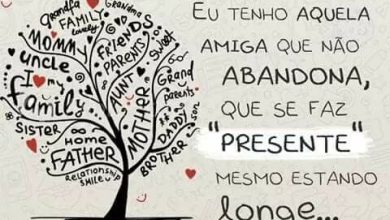 grandpa
Grandma
FAMILY
lovely
FRIENDS
MOMM
PARENTS
uncle
Grand
parents
I my
AUNT
Family
MOTHER
SISTER
DADDY
Home
BROTHER
FATHER
RELATIONSHIP
SMILE
EU TENHO AQUELA
AMIGA QUE NÃO
ABANDONA,
QUE SE FAZ
"PRESENTE"
MESMO ESTANDO
LONGE...